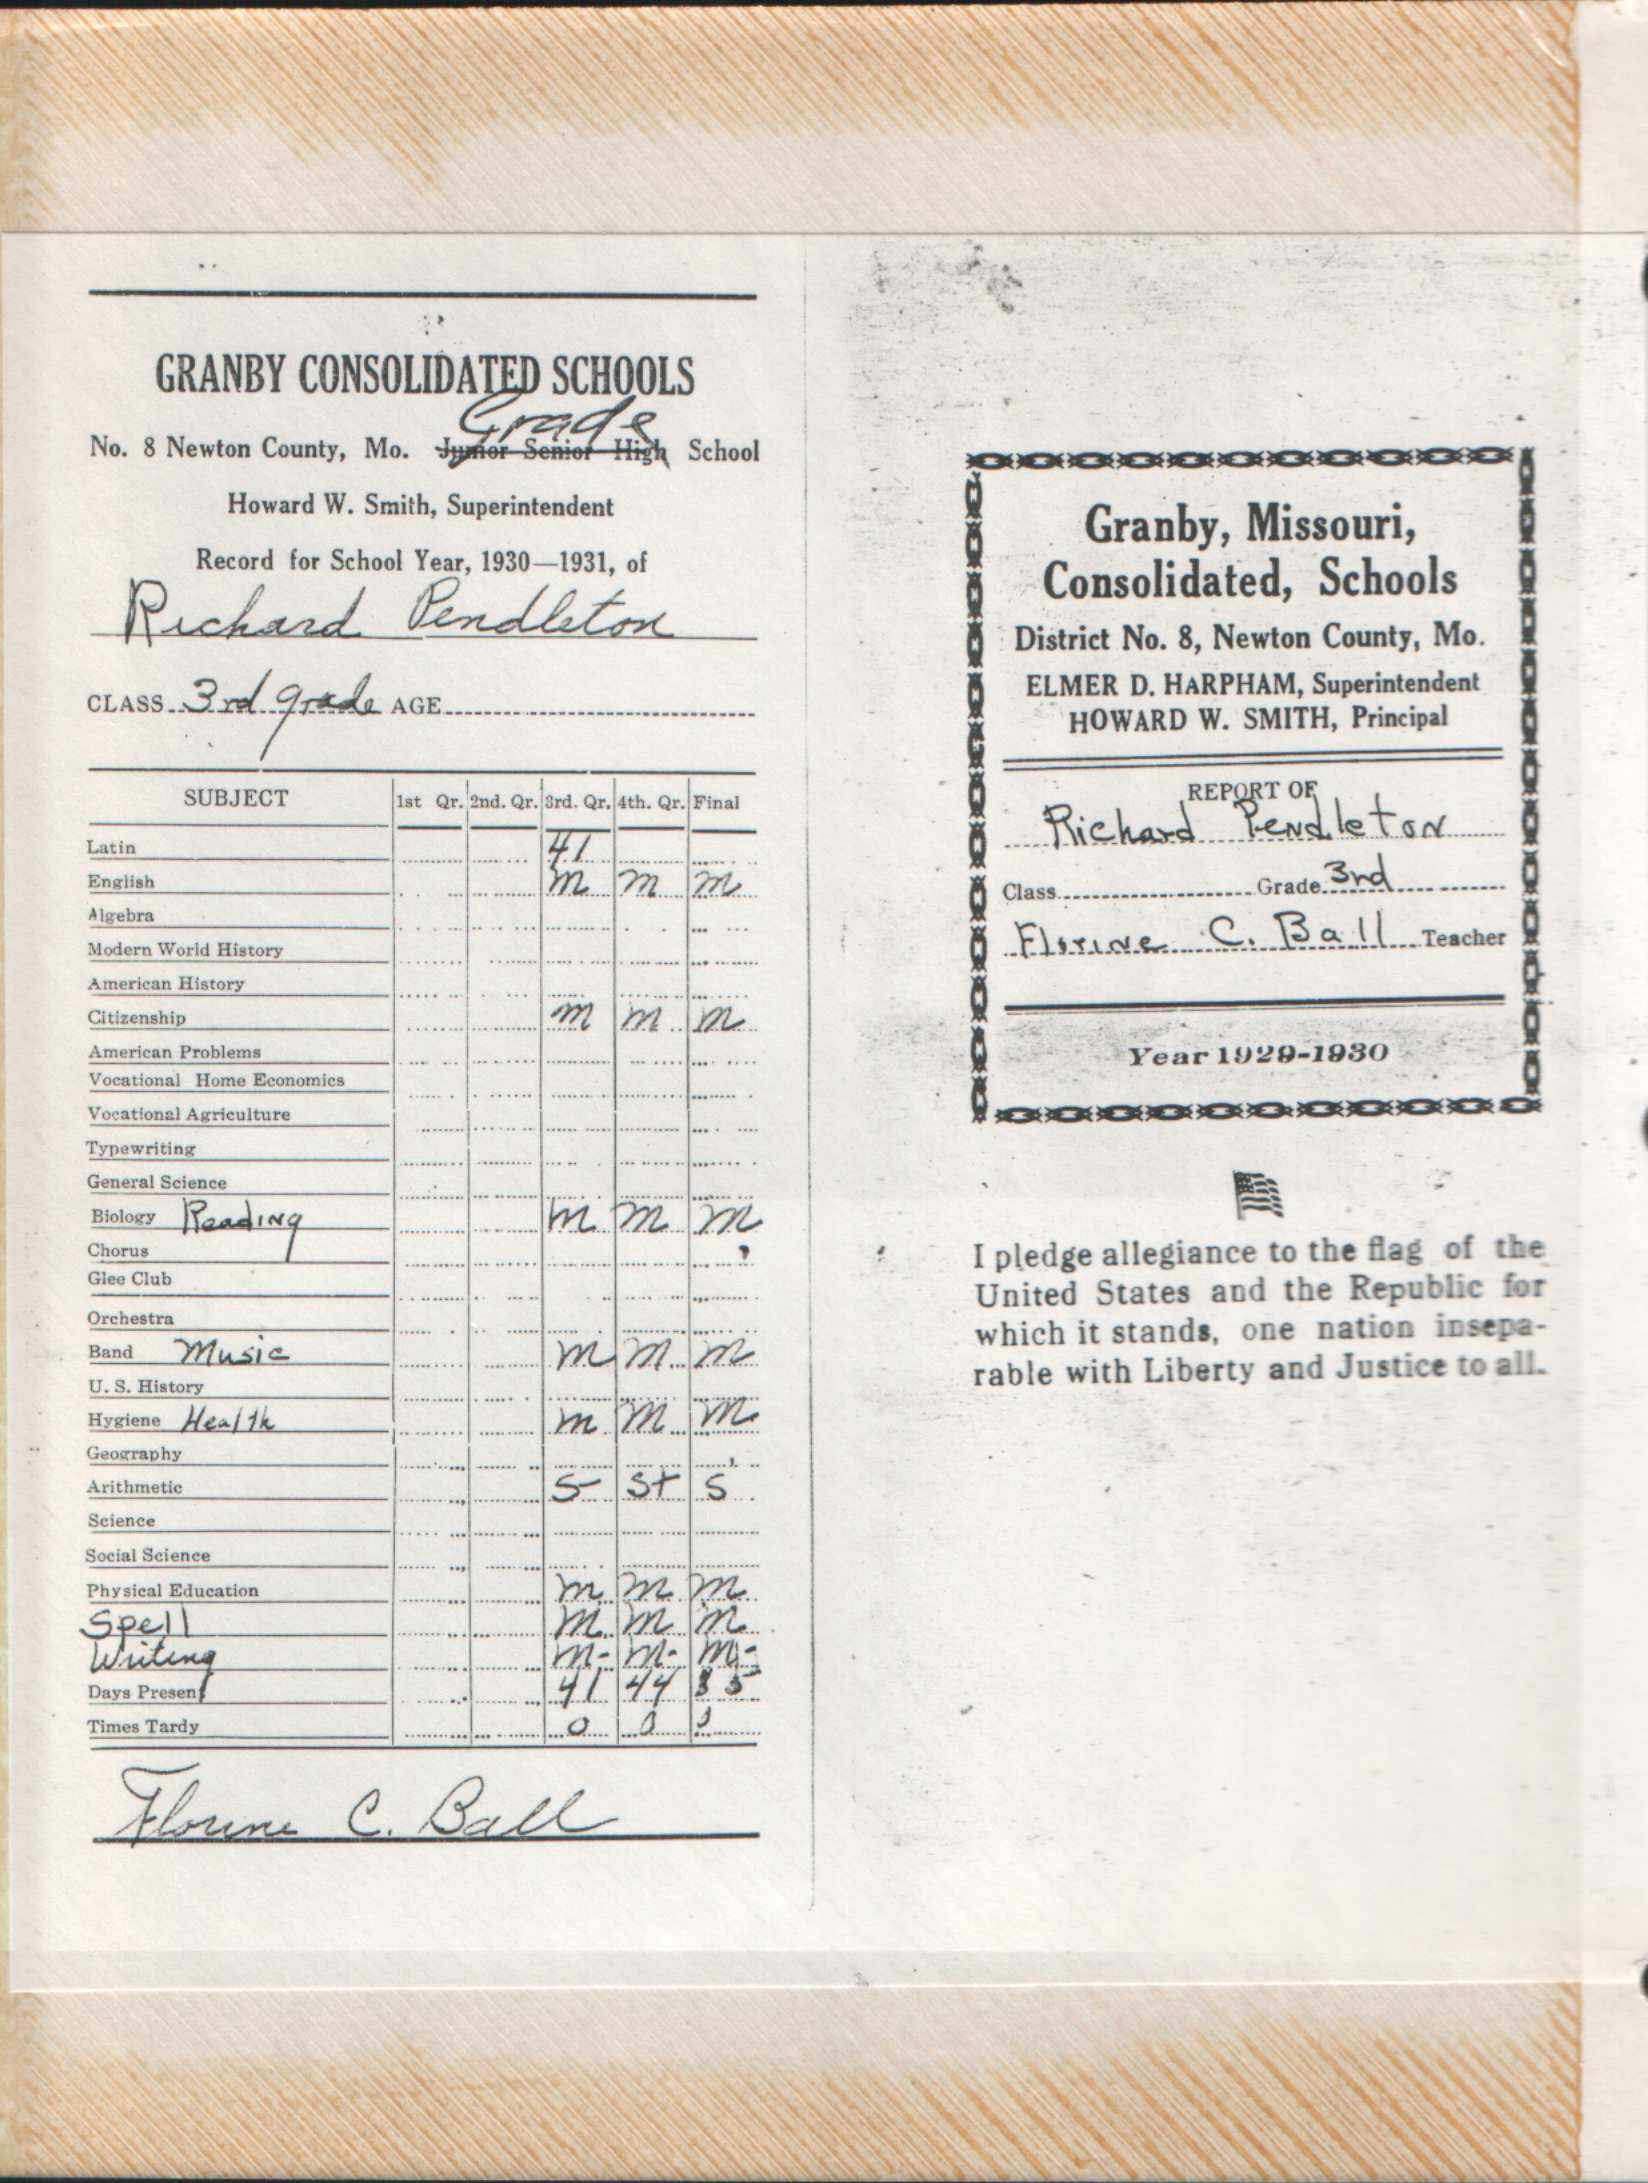 GRANBY CONSOLIDATED SCHOOLS
Grade
No. 8 Newton County, Mo. Junior Senior High School
Howard W. Smith, Superintendent
Record for School Year, 1930—1931, of
Richard Pendleton
CLASS 3rd grade AGE
SUBJECT 1st Qr. 2nd. Qr. 3rd. Qr. 4th. Qr. Final
Latin 41
English m m m
Algebra
Modern World History
American History
Citizenship m m m
American Problems
Vocational Home Economics
Vocational Agriculture
Typewriting
General Science
Biology Reading m m m
Chorus
Glee Club
Orchestra
Band Music m m m
U. S. History
Hygiene Health m m m
Geography
Arithmetic S- S+ S
Science
Social Science
Physical Education m m m
Spell m m m
Writing m- m- m-
Days Present 41 44 85
Times Tardy 0 0 0
Florine C. Ball
Granby, Missouri,
Consolidated, Schools
District No. 8, Newton County, Mo.
ELMER D. HARPHAM, Superintendent
HOWARD W. SMITH, Principal
REPORT OF
Richard Pendleton
Class Grade 3rd
Florine C. Ball Teacher
Year 1929-1930
I pledge allegiance to the flag of the
United States and the Republic for
which it stands, one nation insepa-
rable with Liberty and Justice to all.